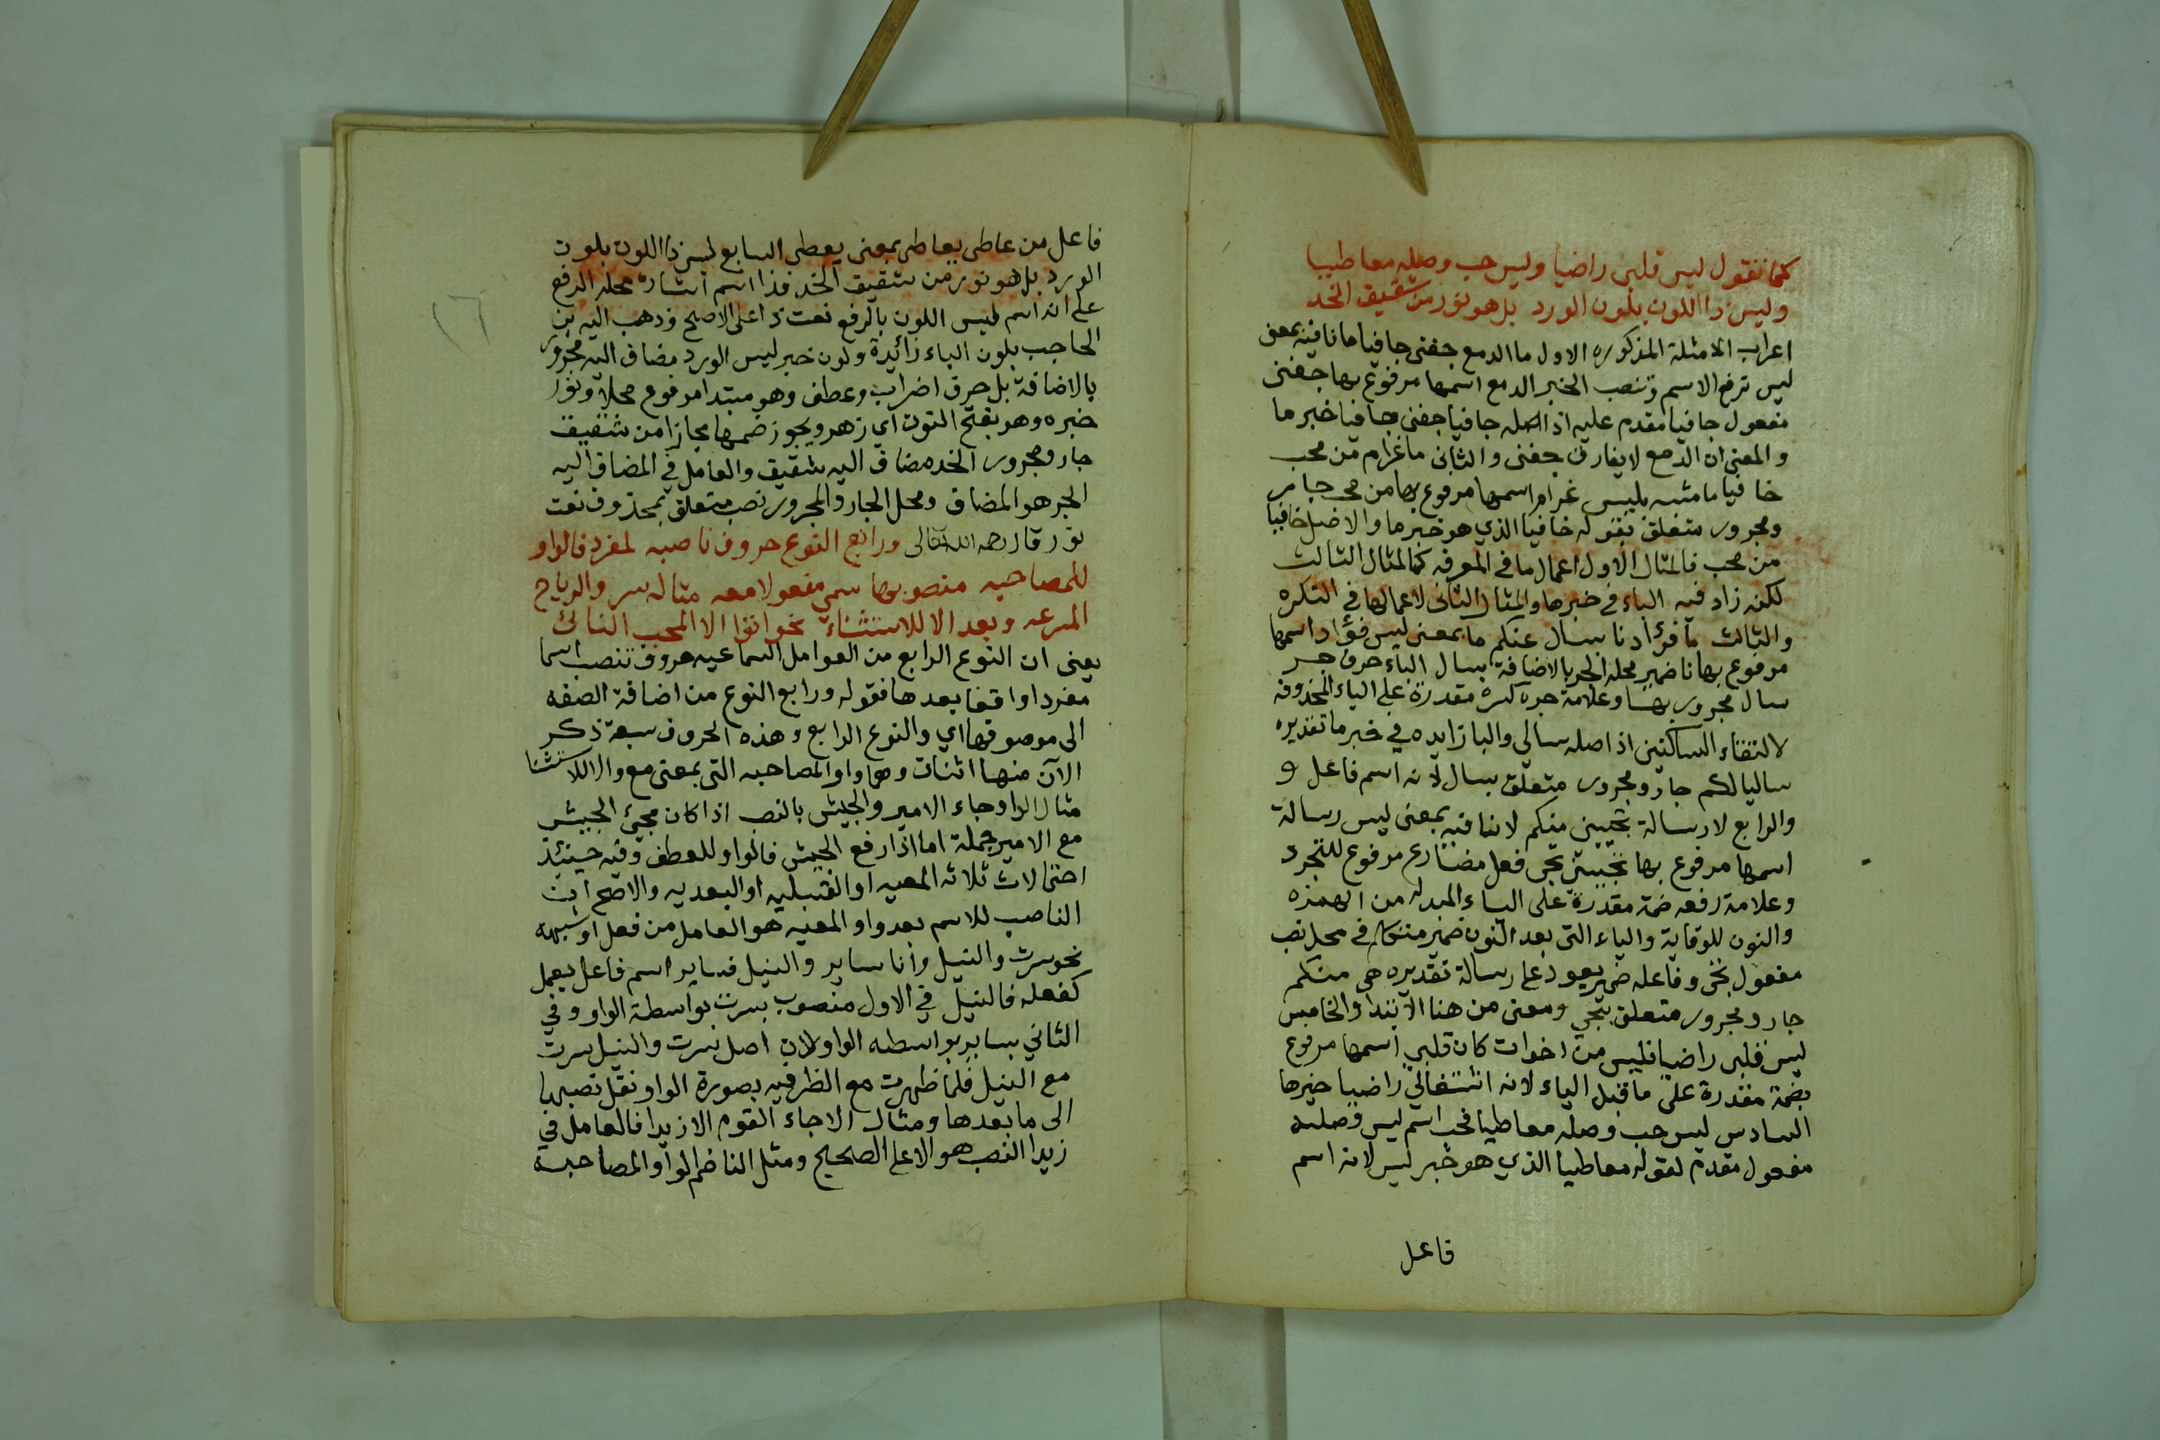 كما نقول ليس قلبي راضيا وليس حب وصله معاطيا
وليس ذا اللون بلون الورد بل هو نور من شقيق الخد
اعراب الامثلة المذكوره الاول ما الدمع جفنى جافيا ما نافية بمعنى
ليس ترفع الاسم وتنصب الخبر الدمع اسمها مرفوع بها جفنى
مفعول جافيا مقدم عليه اذ اصله جافيا جفنى وجافيا خبر ما
والمعنى ان الدمع لا يفارق جفنى والثانى ما غرام من محب
خافيا ما مشبه بليس غرام اسمها مرفوع بها من محب جار
ومجرور متعلق بقوله خافيا الذي هو خبر ما والاصل خافيا
من محب فالمثال الاول اعمال ما فى المعرفه كالمثال الثالث
لكنه زاد فيه الباء فى خبرها والمثال الثانى لاعمالها فى النكره
والثالث ما فؤادنا بسال عنكم ما بمعنى ليس فؤاد اسمها
مرفوع بها نا ضمير محله الجر بالاضافة بسال الباء حرف جر
سال مجرور بها وعلامة جره كسره مقدرة على الياء المحذوفه
لالتقاء الساكنين اذ اصله سالي والبا زايده في خبر ما تقديره
ساليا لكم جار ومجرور متعلق بسال لانه اسم فاعل و
والرابع لا رسالة تجيئنى منكم لا نافيه بمعنى ليس رسالة
اسمها مرفوع بها تجيئني تجى فعل مضارع مرفوع للتجرد
وعلامة رفعه ضمة مقدرة على الياء المبدله من الهمزه
والنون للوقاية والياء التى بعد النون ضمير متكلم فى محل نصب
مفعول تجى وفاعله ضمير يعود على رسالة تقديره هى منكم
جار ومجرور متعلق بتجي ومعنى من هنا الابتدا والخامس
ليس قلبى راضيا فليس من اخوات كان قلبي اسمها مرفوع
بضمة مقدرة على ما قبل الياء لانه اشتغالي راضيا خبرها
السادس ليس حب وصله معاطيا فحب اسم ليس وصله
مفعول مقدم لقوله معاطيا الذي هو خبر ليس لانه اسم
فاعل
١٦
فاعل من عاطى يعاطى بمعنى يعطى السابع ليس ذا اللون بلون
الورد بل هو نور من شقيق الخد فذا اسم اشارة محله الرفع
على انه اسم ليس اللون بالرفع نعت ذا على الاصح وذهب اليه بن
الحاجب بلون الباء زائدة ولون خبر ليس الورد مضاف اليه مجرور
بالاضافة بل حرف اضراب وعطف وهو مبتدا مرفوع محلا ونور
خبره وهو بفتح النون اي زهر ويجوز ضمها مجازا من شقيق
جار ومجرور الخد مضاف اليه شقيق والعامل في المضاف اليه
الجر هو المضاف ومحل الجار والمجرور نصب متعلق بمحذوف نعت
نور قال رحمه الله تعالى ورابع النوع حروف ناصبه لمفرد فالواو
للمصاحبه منصوبها سمي مفعولا معه مثاله سر والرياح
المسرعه وبعد الا للاستثناء نحو اتوا الا المحب النائئ
يعنى ان النوع الرابع من العوامل السماعيه حروف تنصب اسما
مفردا واقعا بعدها فقوله ورابع النوع من اضافة الصفه
الى موصوفها اي والنوع الرابع وهذه الحروف سبعة ذكر
الآن منها اثنان وهما واو المصاحبه التى بمعنى مع والا للاستثنا
مثال الواو جاء الامير والجيش بالنصب اذا كان مجيئ الجيش
مع الامير جملة اما اذا رفع الجيش فالواو للعطف وفيه حينئذ
احتمالات ثلاثه المعيه او القبليه او البعديه والاصح ان
الناصب للاسم بعد واو المعيه هو العامل من فعل او شبهه
نحو سرت والنيل وانا ساير والنيل فساير اسم فاعل يعمل
كفعله فالنيل في الاول منصوب بسرت بواسطة الواو وفي
الثاني بساير بواسطه الواو ولان اصل سرت والنيل سرت
مع النيل فلما ظهرت مع الظرفيه بصورة الواو نقل نصبها
الى ما بعدها ومثال الا جاء القوم الا زيدا فالعامل في
زيدا النصب هو الا على الصحيح ومثل الناظم لواو المصاحبة